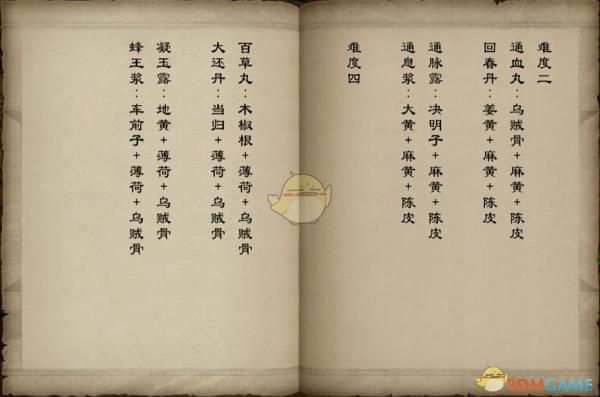 难度二
通血丸：乌贼骨+麻黄+陈皮
回春丹：姜黄+麻黄+陈皮
通脉露：决明子+麻黄+陈皮
通息浆：大黄+麻黄+陈皮
难度四
百草丸：木椒根+薄荷+乌贼骨
大还丹：当归+薄荷+乌贼骨
凝玉露：地黄+薄荷+乌贼骨
蜂王浆：车前子+薄荷+乌贼骨
3DMGAME